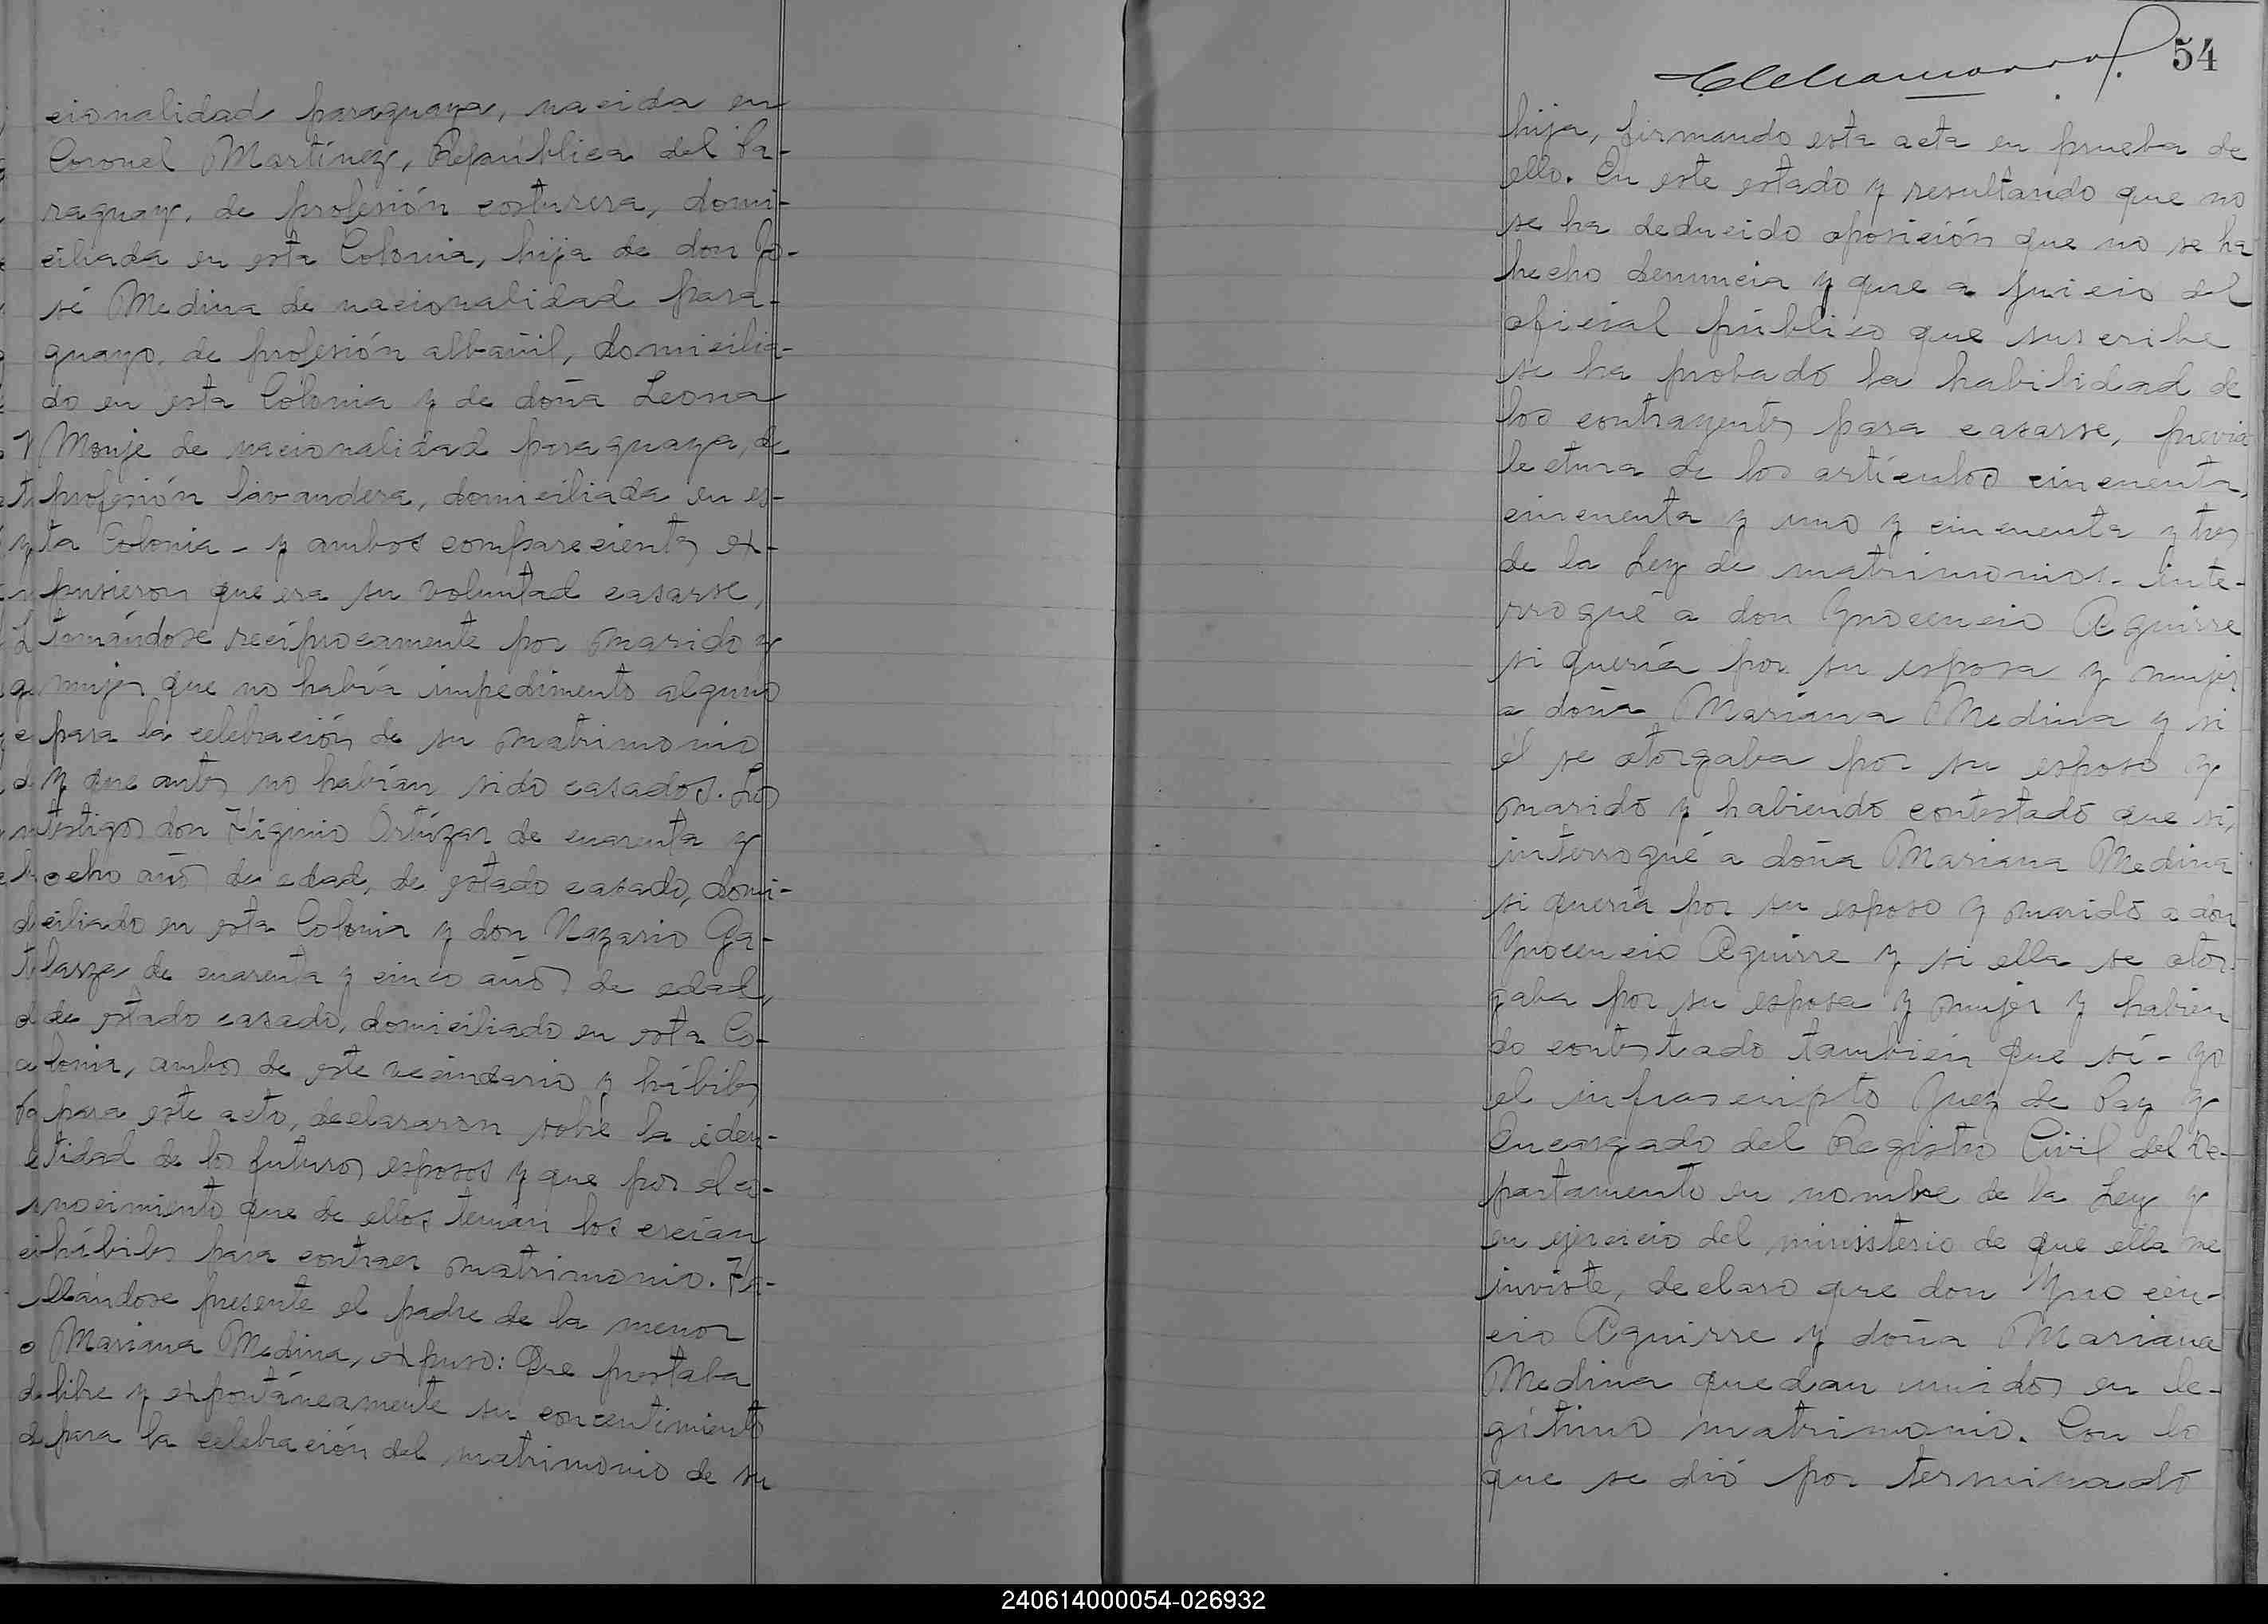 cionalidad paraguaya, nacida en
Coronel Martínez, República del Pa-
raguay, de profesión costurera, domi-
ciliada en esta Colonia, hija de don Jo-
sé Medina de nacionalidad para-
guayo, de profesión albañil, domicilia-
do en esta Colonia y de doña Leona
Monje de nacionalidad paraguaya, de
profesión lavandera, domiciliada en es-
ta Colonia - y ambos comparecientes ex-
pusieron que era su voluntad casarse,
tomándose recíprocamente por marido y
mujer que no había impedimento alguno
para la celebración de su matrimonio
y que antes no habían sido casados. Los
testigos don Higinio Ortúzar de cuarenta y
ocho años de edad, de estado casado, domi-
ciliado en esta Colonia y don Nazario Ga-
larza de cuarenta y cinco años de edad,
de estado casado, domiciliado en esta Co-
lonia, ambos de este vecindario y hábiles
para este acto, declararon sobre la iden-
tidad de los futuros esposos y que por el co-
nocimiento que de ellos tenían los creían
hábiles para contraer matrimonio. Ha-
llándose presente el padre de la menor
Mariana Medina, expuso: Que prestaba
libre y expontáneamente su concentimiento
para la celebración del matrimonio de su
54
hija, firmando esta acta en prueba de
ello. En este estado y resultando que no
se ha deducido oposición que no se ha
hecho denuncia y que a juicio del
oficial público que suscribe
se ha probado la habilidad de
los contrayentes para casarse, previa
lectura de los artículos cincuenta,
cincuenta y uno y cincuenta y tres
de la Ley de matrimonios - inte-
rrogué a don Ynocencio Aguirre
si quería por su esposa y mujer
a doña Mariana Medina y si
él se otorgaba por su esposo y
marido y habiendo contestado que sí,
interrogué a doña Mariana Medina
si quería por su esposo y marido a don
Ynocencio Aguirre y si ella se otor-
gaba por su esposa y mujer y habien
do contestado también que sí - yo
el infrascripto Juez de Paz y
Encargado del Registro Civil del De-
partamento en nombre de la Ley y
en ejercicio del ministerio de que ella me
inviste, declaro que don Ynocen-
cio Aguirre y doña Mariana
Medina quedan unidos en le-
gítimo matrimonio. Con lo
que se dió por terminado
240614000054-026932